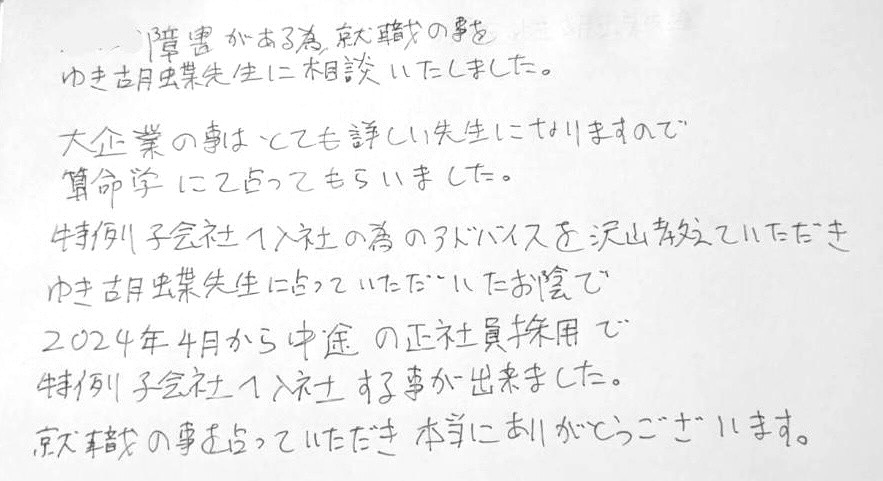 障害がある為、就職の事を
ゆき胡蝶先生に相談いたしました。
大企業の事はとても詳しい先生になりますので
算命学にて占ってもらいました。
特例子会社へ入社の為のアドバイスを沢山教えていただき
ゆき胡蝶先生に占っていただいたお陰で
2024年4月から中途の正社員採用で
特例子会社へ入社する事が出来ました。
就職の事を占っていただき本当にありがとうございます。